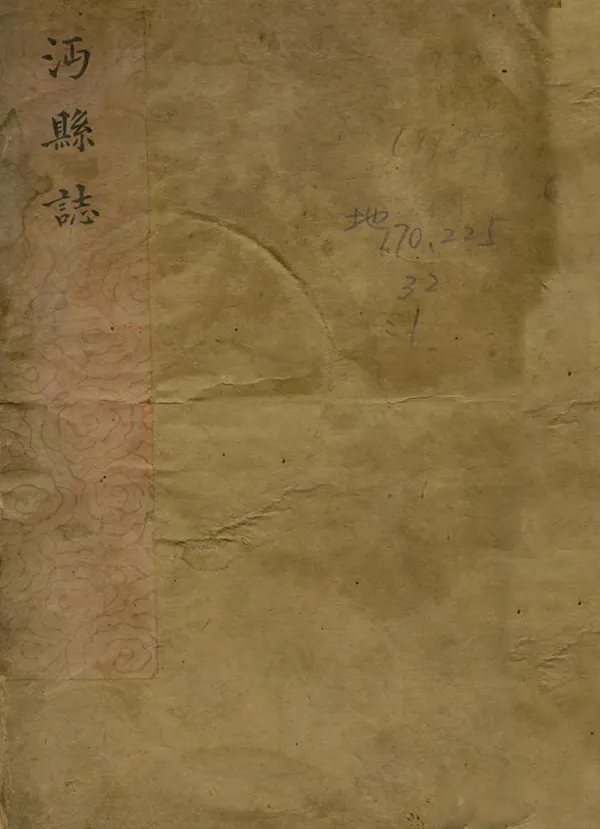 沔縣誌
地
170.225
32
-1